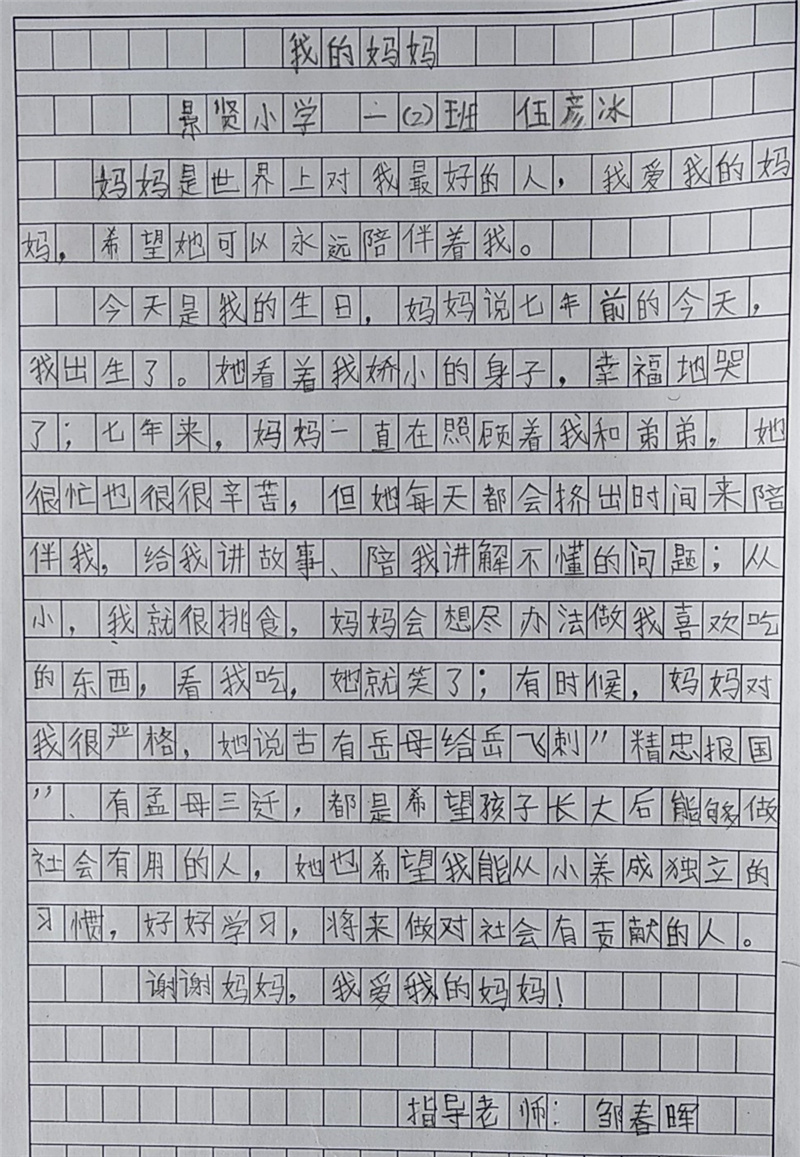 我的妈妈
景贤小学 一(2)班 伍彦冰
妈妈是世界上对我最好的人，我爱我的妈
妈，希望她可以永远陪伴着我。
今天是我的生日，妈妈说七年前的今天，
我出生了。她看着我娇小的身子，幸福地哭
了；七年来，妈妈一直在照顾着我和弟弟，她
很忙也很很辛苦，但她每天都会挤出时间来陪
伴我，给我讲故事、陪我讲解不懂的问题；从
小，我就很挑食，妈妈会想尽办法做我喜欢吃
的东西，看我吃，她就笑了；有时候，妈妈对
我很严格，她说古有岳母给岳飞刺"精忠报国
"、有孟母三迁，都是希望孩子长大后能够做
社会有用的人，她也希望我能从小养成独立的
习惯，好好学习，将来做对社会有贡献的人。
谢谢妈妈，我爱我的妈妈！
指导老师：邹春晖